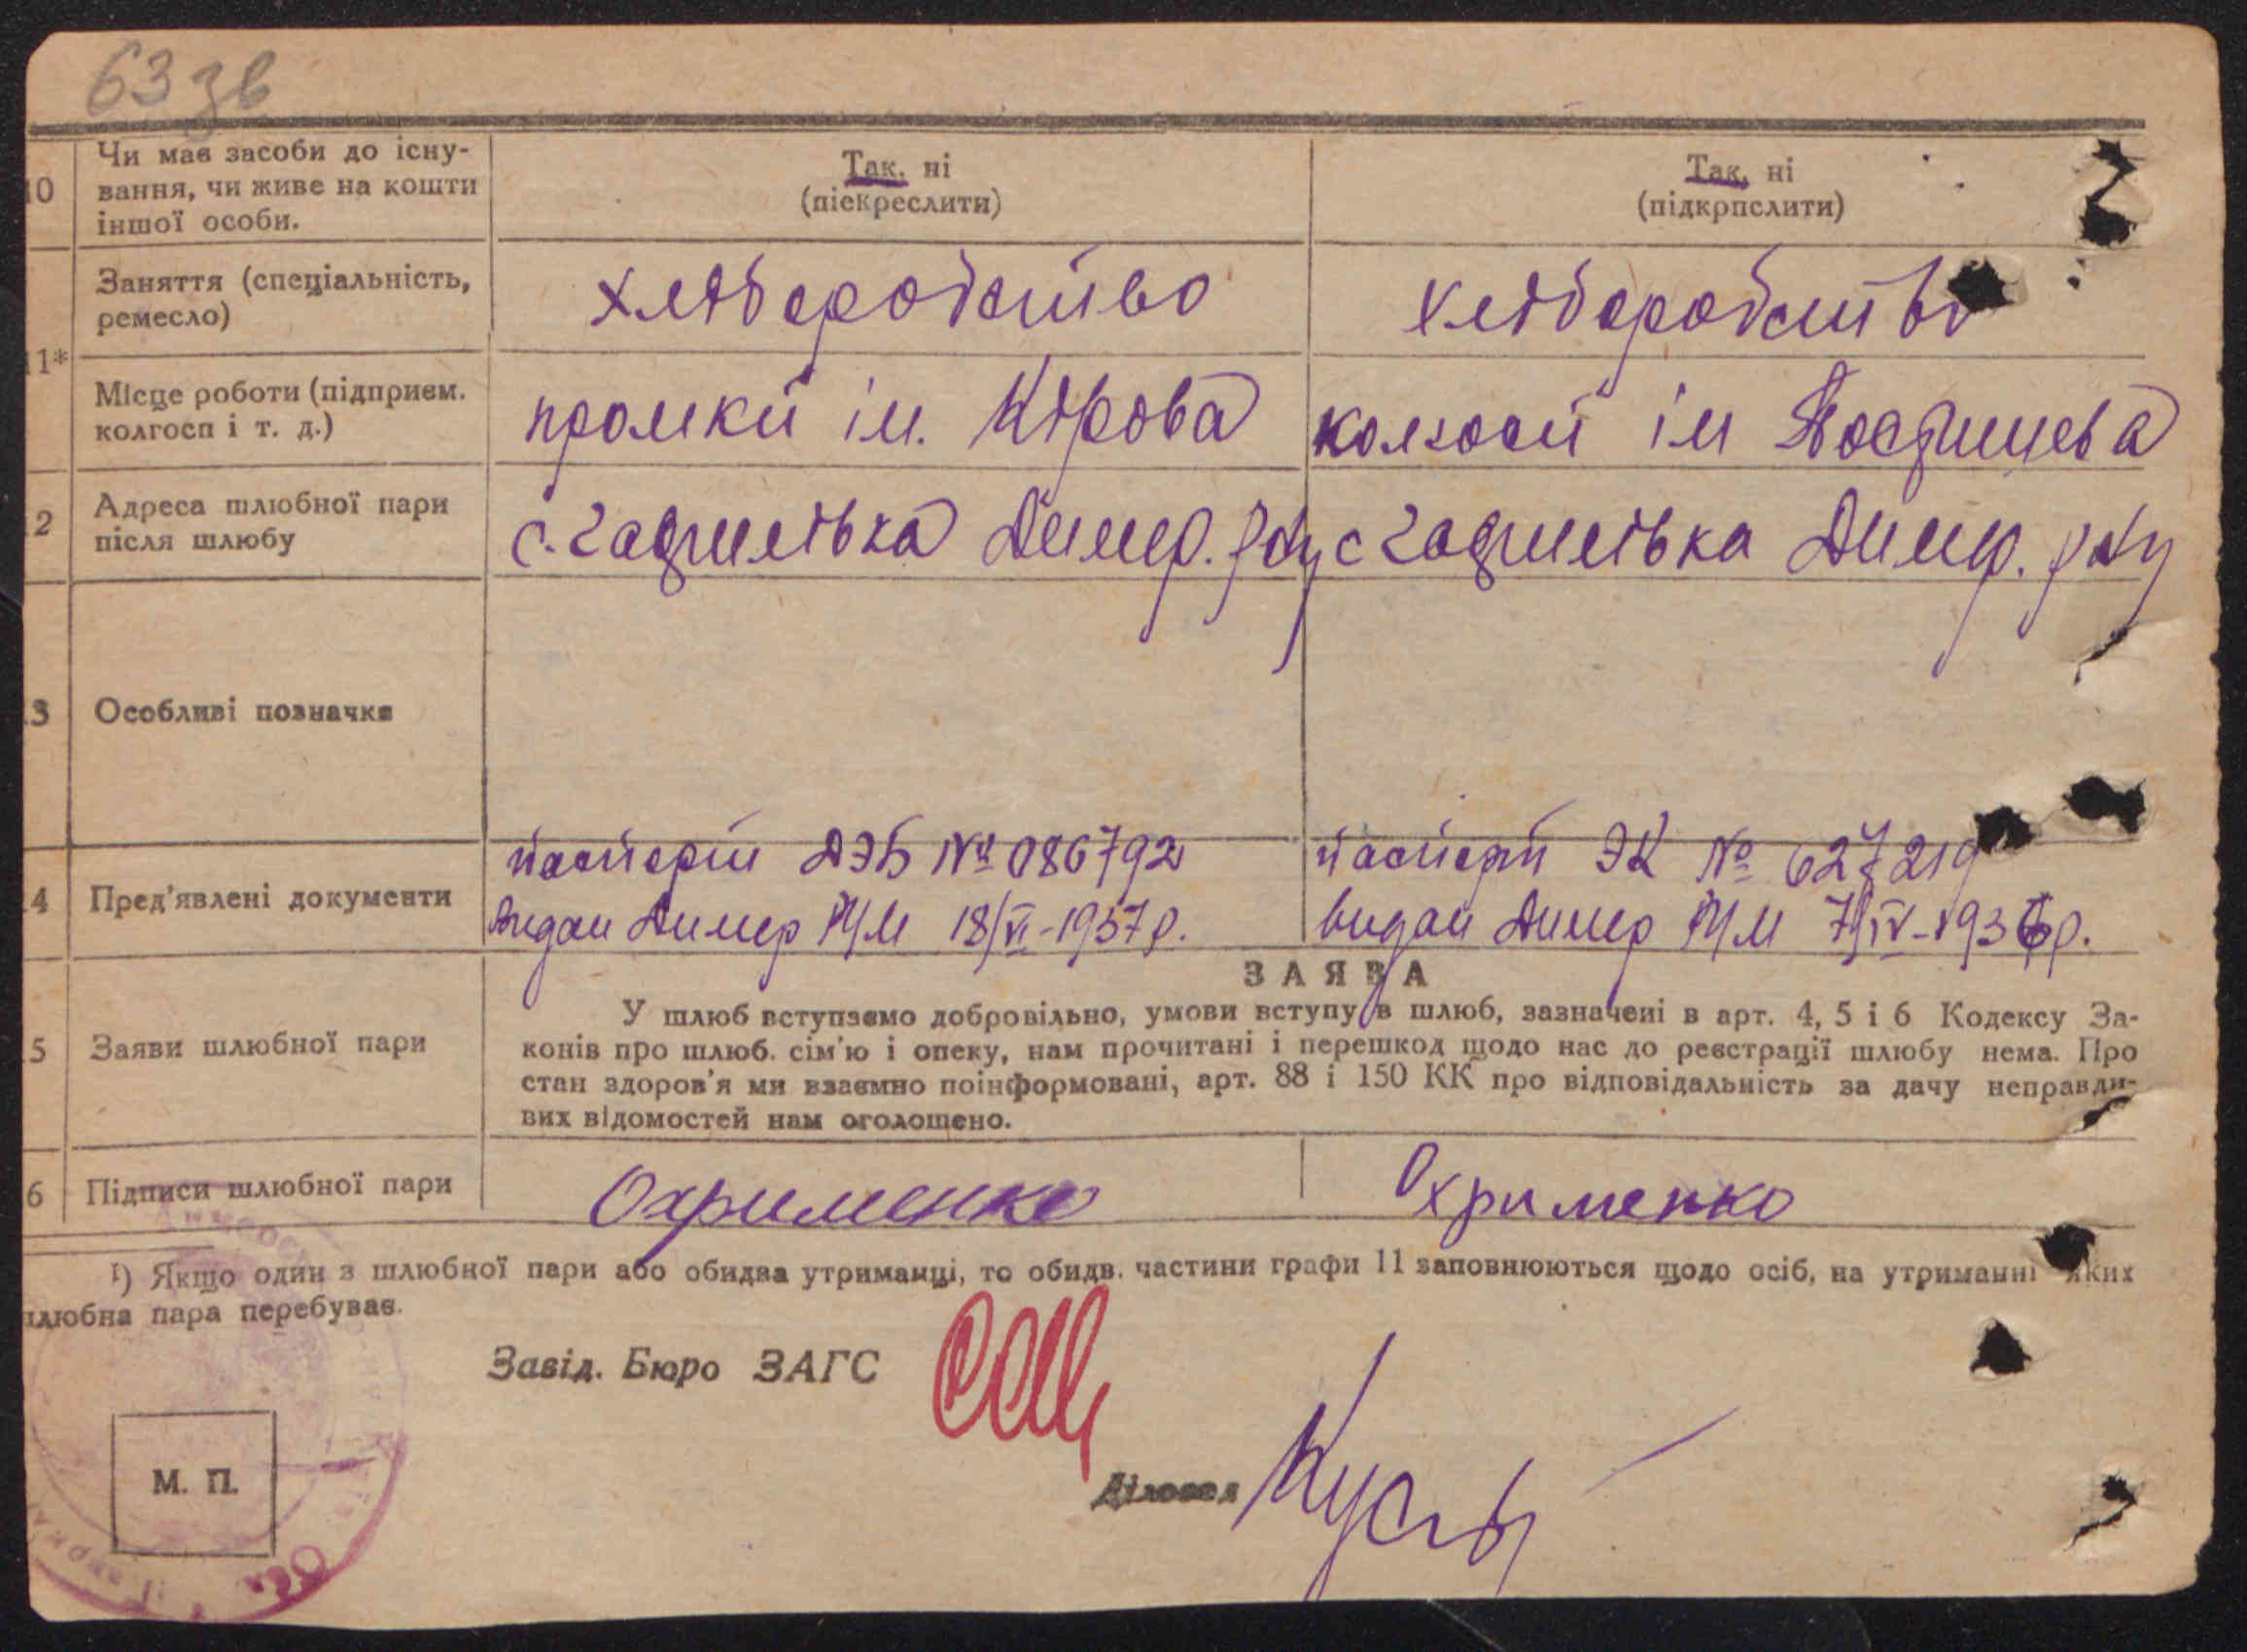 63 зв
10 Чи має засоби до існу-
вання, чи живе на кошти
іншої особи.
Так, ні
(піекреслити)
Так, ні
(підкрпслити)
11*
Заняття (спеціальність,
ремесло)
хліборобство
хліборобство
Місце роботи (підприєм.
колгосп і т. д.)
ім. Кірова
колгосп ім Постишева
2 Адреса шлюбної пари
після шлюбу
с. Димер. р-ну
с Димер. р-ну
3 Особливі позначке
4 Пред'явлені документи
паспорт ДЭБ № 086792
видан Димер РУМ 18/VI-1937 р.
паспорт ЭК № 627219
видан Димер РУМ 7/IV-1936 р.
5 Заяви шлюбної пари
ЗАЯВА
У шлюб вступаємо добровільно, умови вступу в шлюб, зазначені в арт. 4, 5 і 6 Кодексу За-
конів про шлюб. сім'ю і опеку, нам прочитані і перешкод щодо нас до реєстрації шлюбу нема. Про
стан здоров'я ми взаємно поінформовані, арт. 88 і 150 КК про відповідальність за дачу неправди-
вих відомостей нам оголошено.
6 Підписи шлюбної пари
Охрименко
Охрименко
1) Якщо один з шлюбної пари або обидва утриманці, то обидв. частини графи 11 заповнюються щодо осіб, на утриманні яких
шлюбна пара перебуває.
Завід. Бюро ЗАГС
Діловод
М. П.